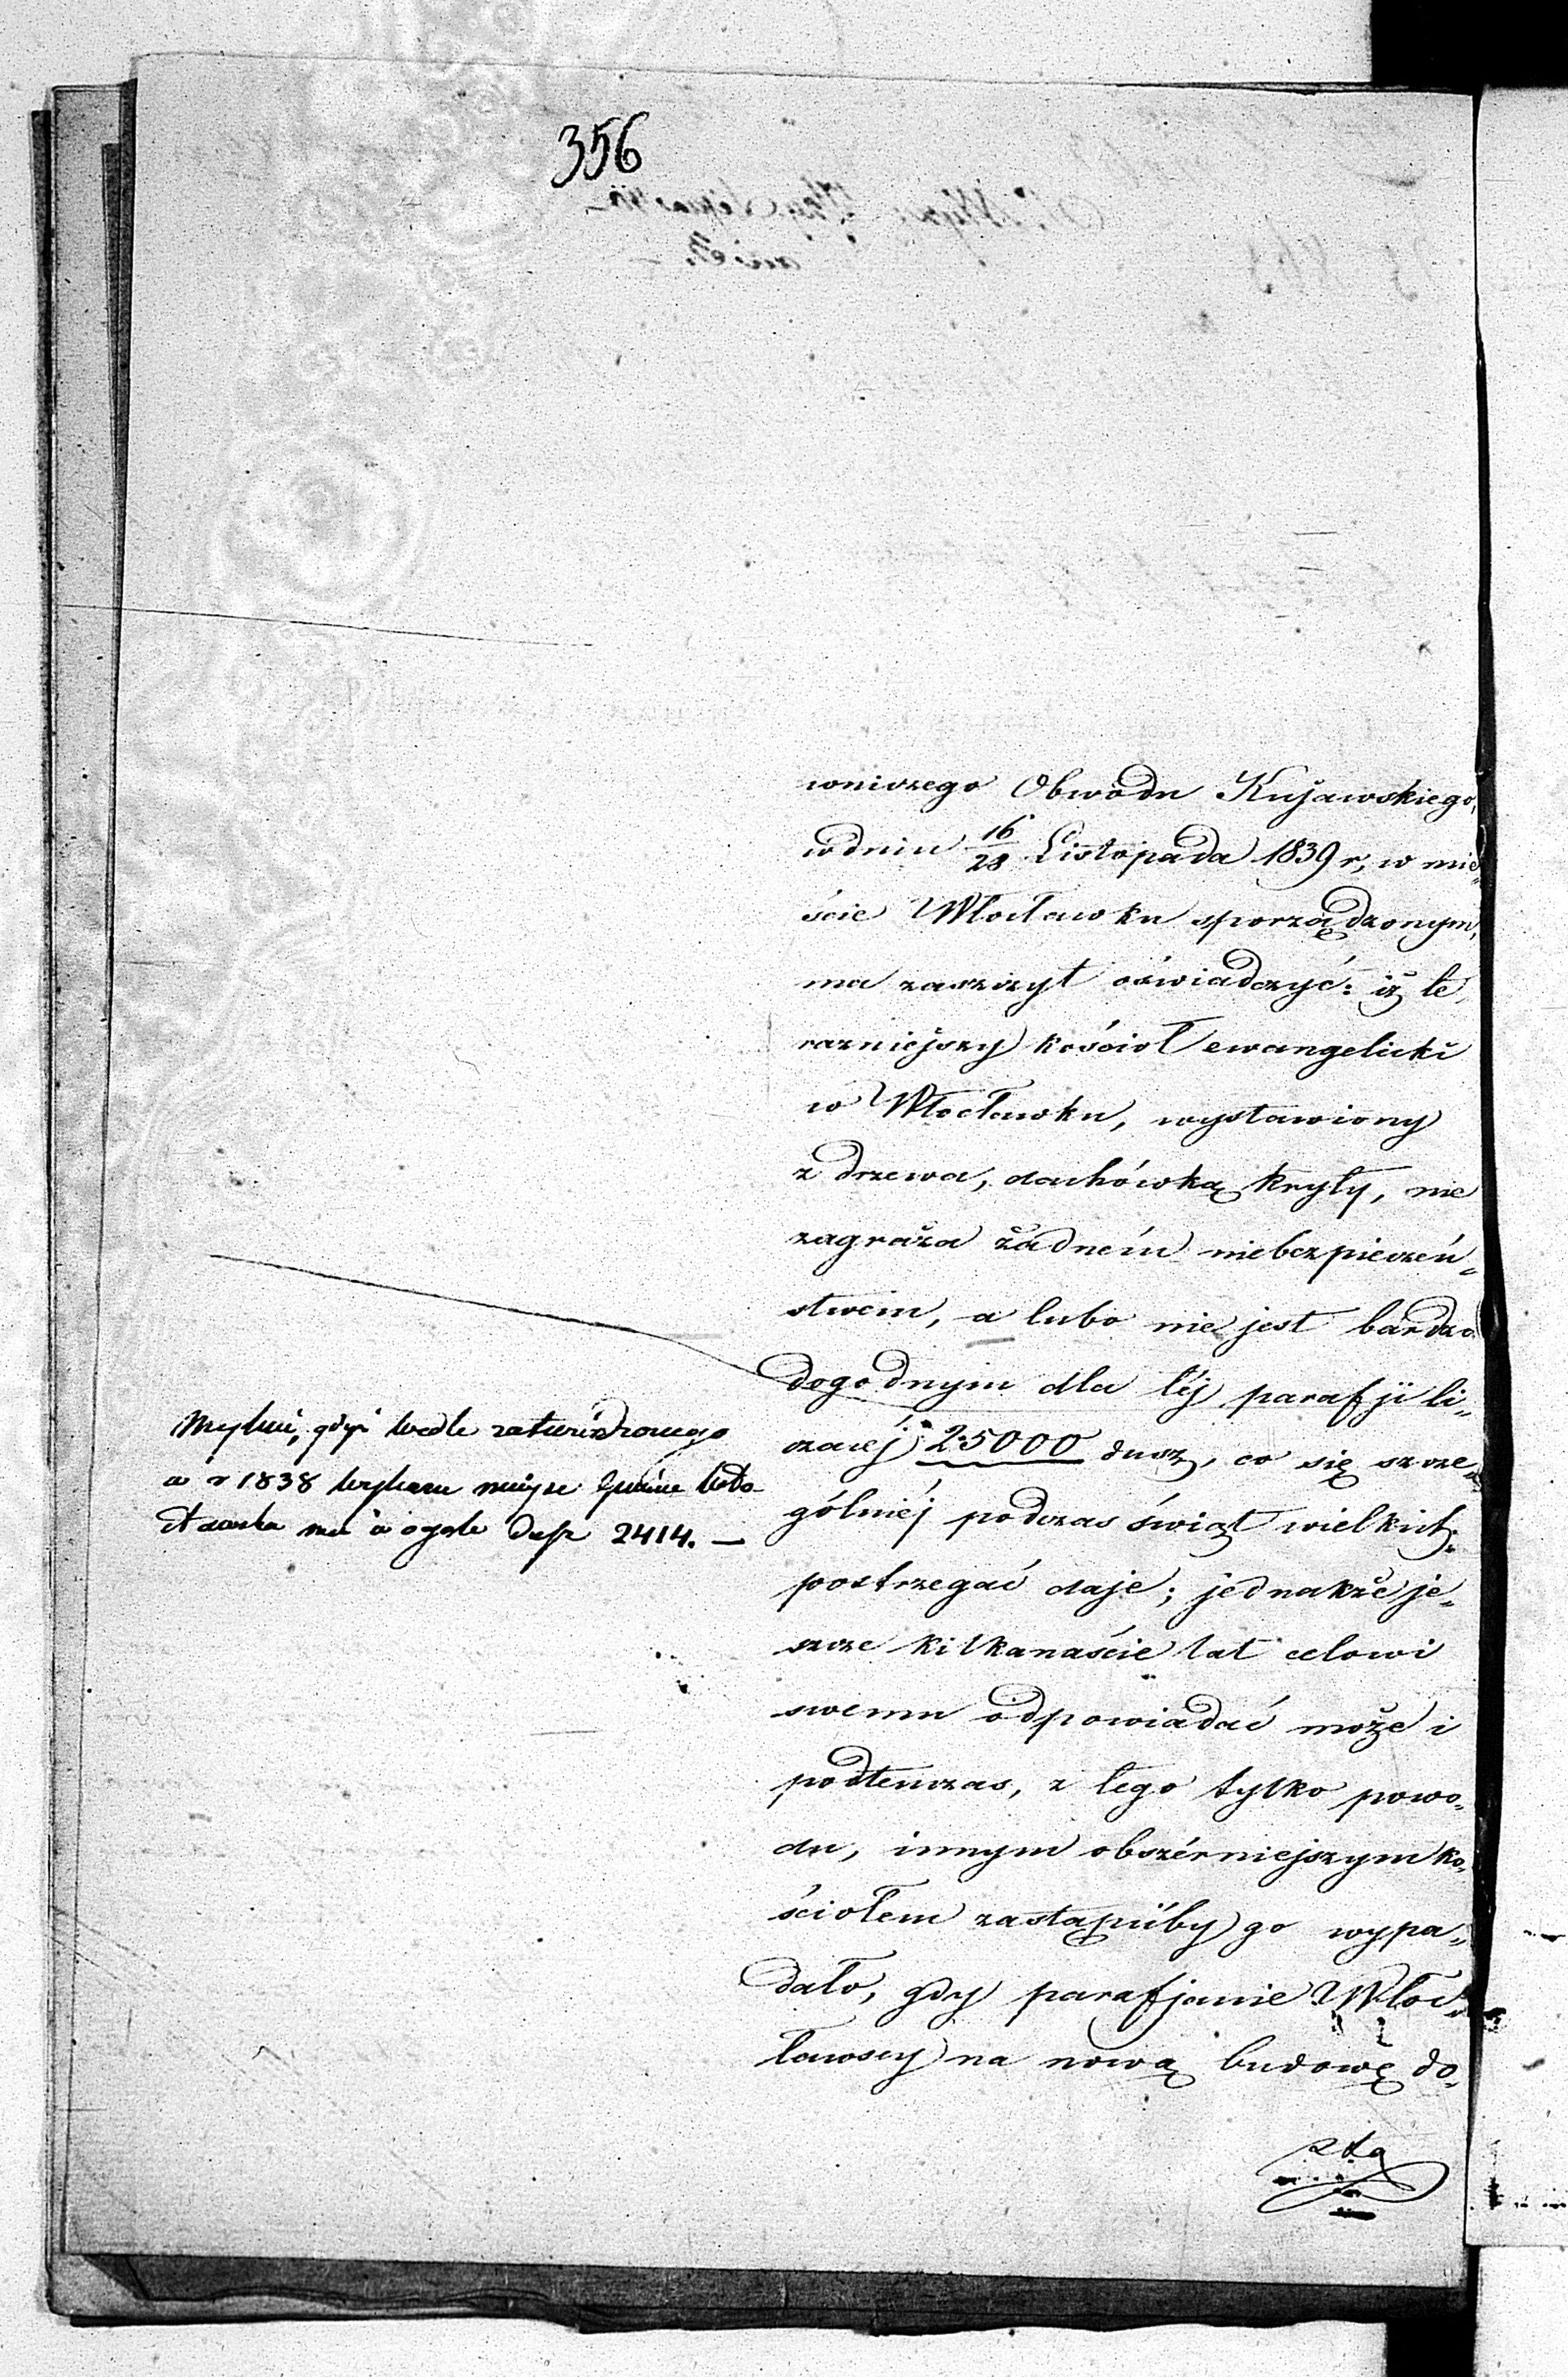 356
wniczego Obwodu Kujawskiego,
w dniu 16/28 Listopada 1839 r, w mie„
ście Włocławku sporządzonym,
ma zaszczyt oświadczyć: iż te
razniejszy kościoł ewangelicki
w Włocławku, wystawiony
z drzewa, dachówką kryty, nie
zagraża żadném niebezpieczeń„
stwem, a lubo nie jest bardzo
dogodnym dla téj parafji li„
czącéj 25000 dusz, co się szcze„
gólniéj podczas świąt wielkich
postrzegać daje; jednakże je„
szcze kilkanaście lat celowi
swemu odpowiadać może i
podtenczas, z tego tylko powo„
du, innym obszérniejszym ko„
ściołem zastąpićby go wypa„
dało, gdy parafjanie Włoc„
ławscy na nową budowę do„
Mylnie, gdyż wedle zatwierdzonego
w r 1838 wykazu gmina Wło-
cławska ma w ogóle dusz 2414. —